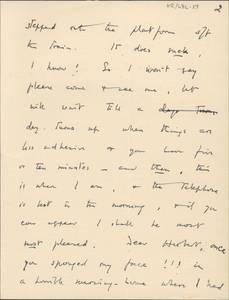 2
stepped onto the platform off
the train. It does suck,
I know! So I won't say
please come & see me, but
will wait till a
day. Turns up when things are
less and you have five
or ten minutes — and then, this
is when I am, & the telephone
is lost in the morning, & if you
can appear I shall be most
most pleased. Dear once
you sponged my face!!! in
a horrible nursing-home where I had